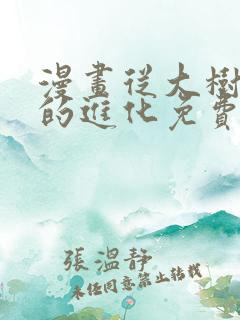 漫畫從大樹
的進化免費
張溫靜
未經同意禁止轉載